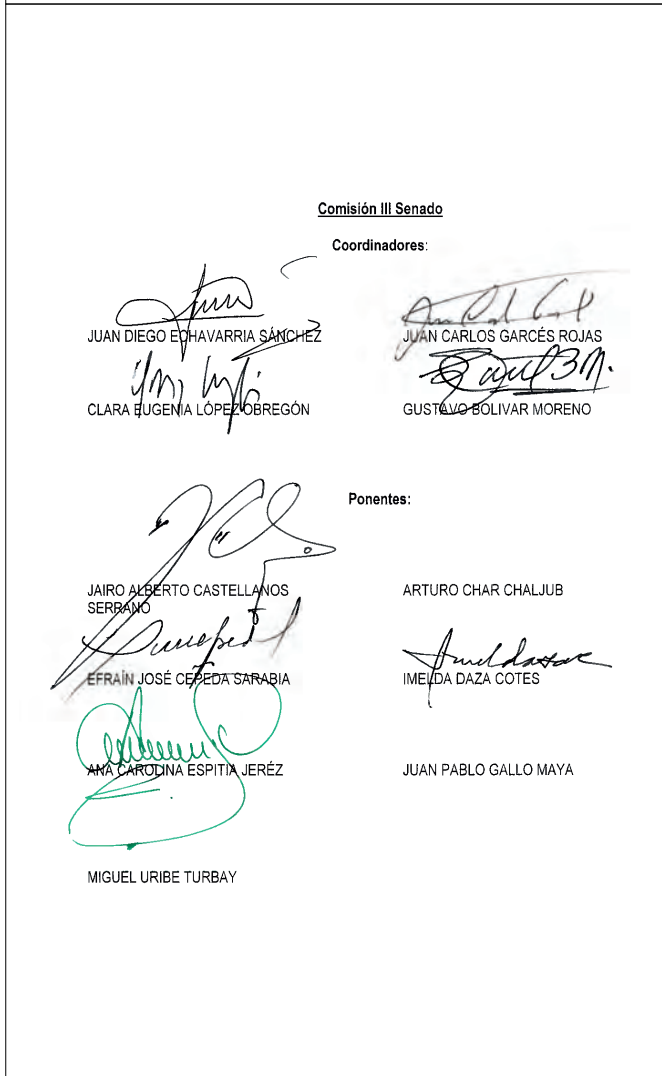 Comisión III Senado
Coordinadores:
JUAN DIEGO ECHAVARRIA SÁNCHEZ
JUAN CARLOS GARCÉS ROJAS
CLARA EUGENIA LÓPEZ OBREGÓN
GUSTAVO BOLIVAR MORENO
Ponentes:
JAIRO ALBERTO CASTELLANOS
SERRANO
ARTURO CHAR CHALJUB
EFRAÍN JOSÉ CEPEDA SARABIA
IMELDA DAZA COTES
ANA CAROLINA ESPITIA JERÉZ
JUAN PABLO GALLO MAYA
MIGUEL URIBE TURBAY